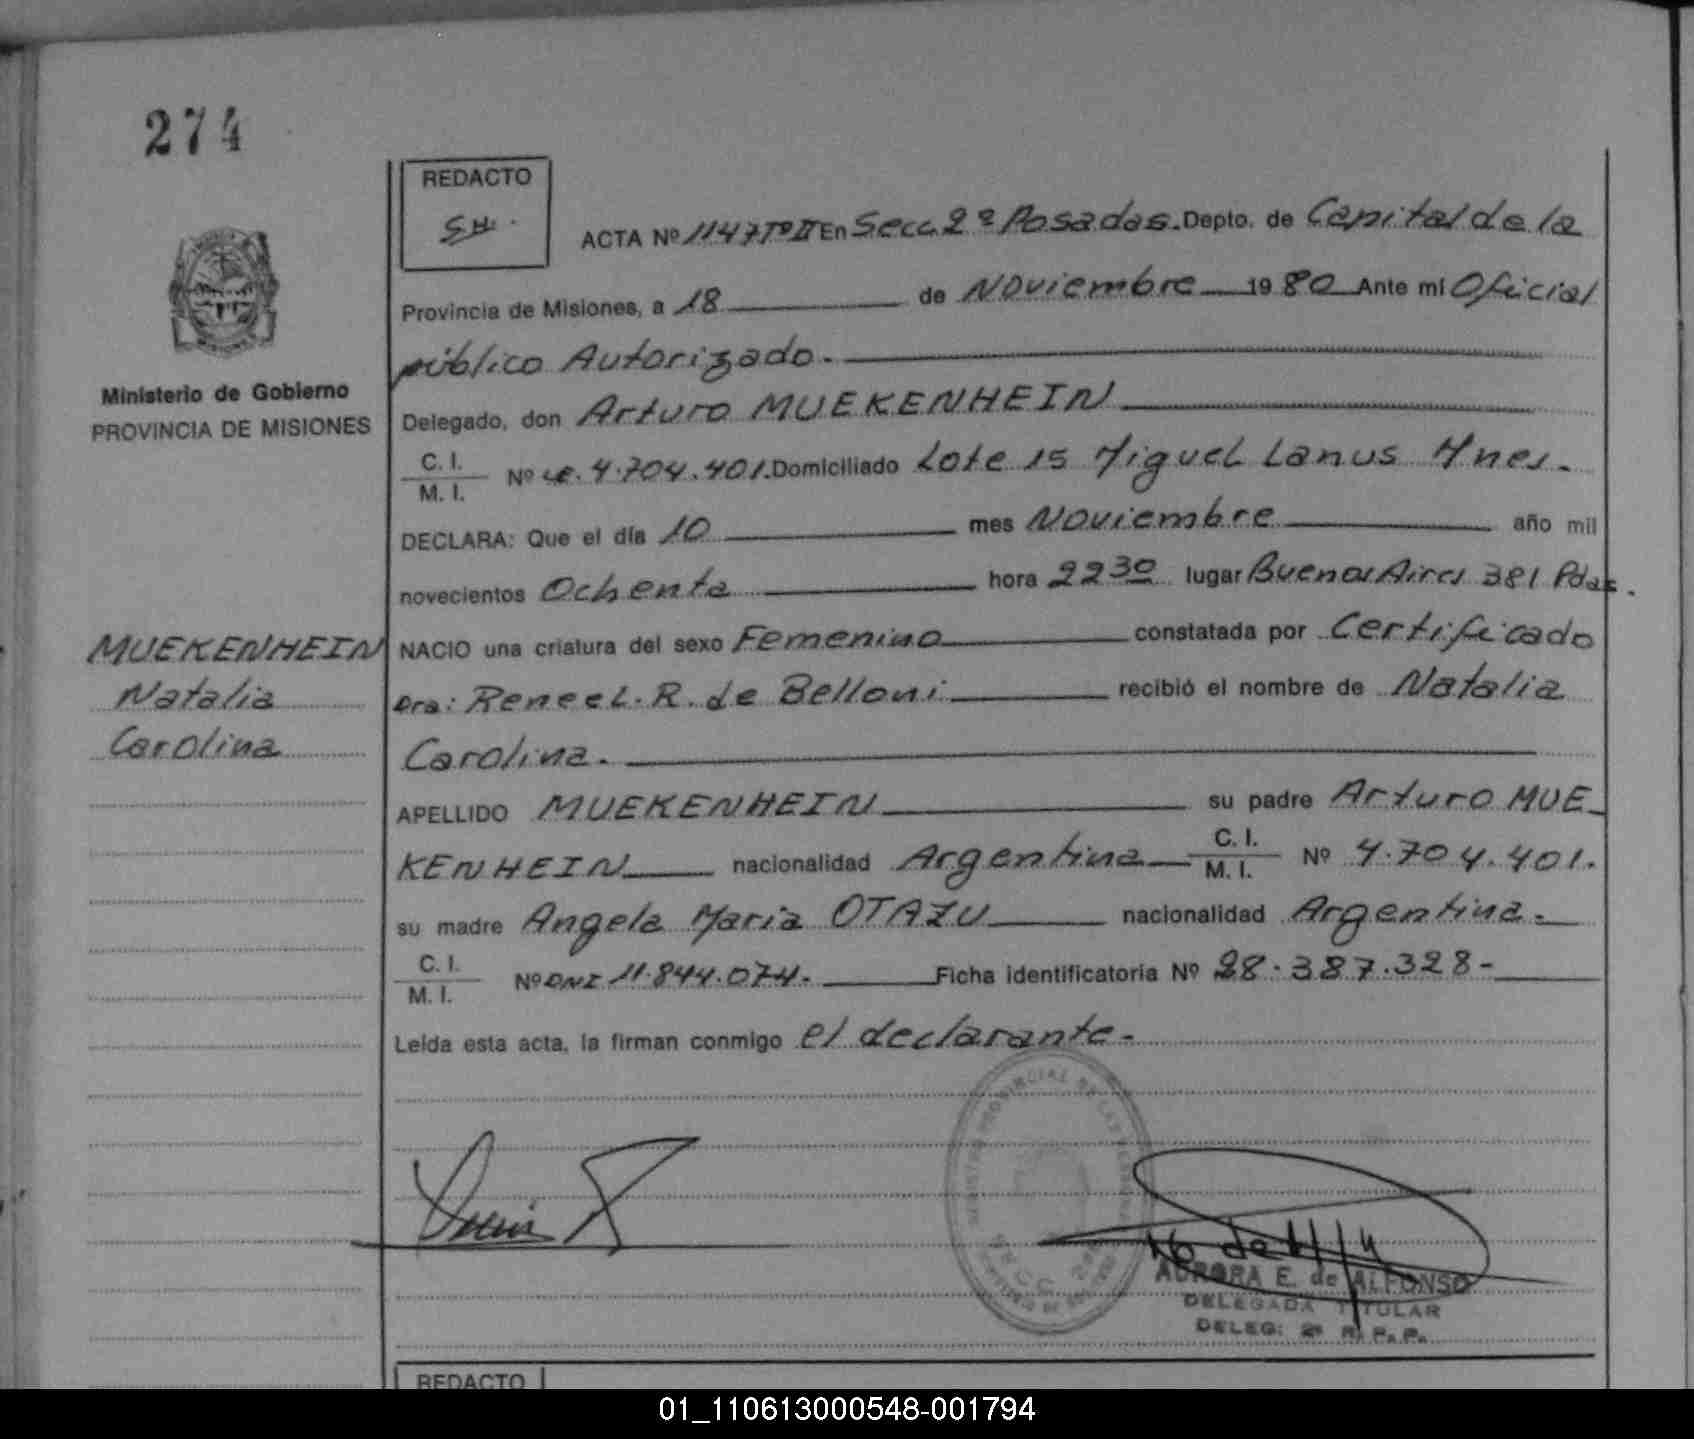 274
REDACTO
SH.
ACTA Nº 1147 Tº II En Secc. 2ª Posadas. Depto. de Capital de la
Provincia de Misiones, a 18 de Noviembre 1980 Ante mí Oficial
público Autorizado.
Ministerio de Gobierno
PROVINCIA DE MISIONES
Delegado, don Arturo MUEKENHEIN
C. I.
M. I. Nº LE. 4.704.401. Domiciliado Lote 15 Miguel Lanus Mnes.
DECLARA: Que el día 10 mes Noviembre año mil
novecientos Ochenta hora 22 30 lugar Buenos Aires 381 Pdas.
MUEKENHEIN
Natalia
Carolina
NACIO una criatura del sexo Femenino constatada por Certificado
Dra: Renee L. R. de Belloni recibió el nombre de Natalia
Carolina.
APELLIDO MUEKENHEIN su padre Arturo MUE-
KENHEIN nacionalidad Argentina C. I. M. I. Nº 4.704.401.
su madre Angela Maria OTAZU nacionalidad Argentina.
C. I.
M. I. Nº DNI 11.844.074. Ficha identificatoria Nº 28.387.328-
Leída esta acta, la firman conmigo el declarante.
AURORA E. de ALFONSO
DELEGADA TITULAR
DELEG: 2ª R. P. P.
REDACTO
01_110613000548-001794